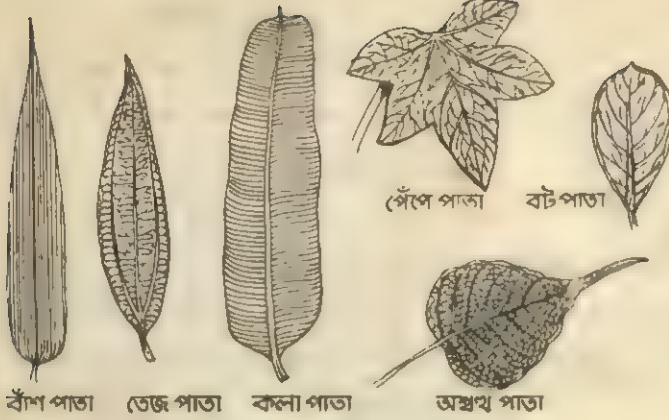 পেঁপে পাতা
বট পাতা
বাঁশ পাতা
তেজ পাতা
কলা পাতা
অশ্বত্থ পাতা